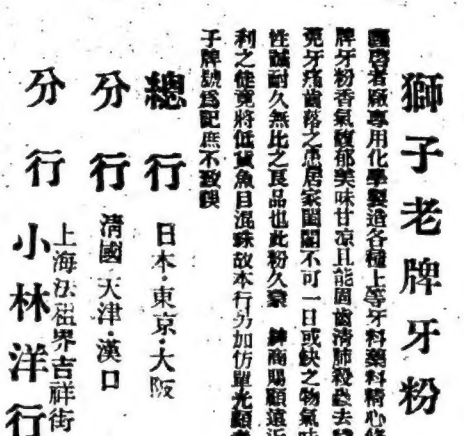 獅子老牌牙粉
謹啓者敝廠專用化學製造各種上等牙科藥料精心
牌牙粉香氣馥郁美味甘凉且能固齒清肺殺蟲去
免牙痛齒落之患居家閨閫不可一日或缺之物氣味
性誠耐久無比之良品也此粉久蒙 紳商賜顧遠近
利之徒竟將低貨魚目混珠故本行另加仿單光顧者
子牌號爲記庶不致誤
總行 日本·東京·大阪
分行 清國 天津·漢口
分行 上海法租界吉祥街
小林洋行